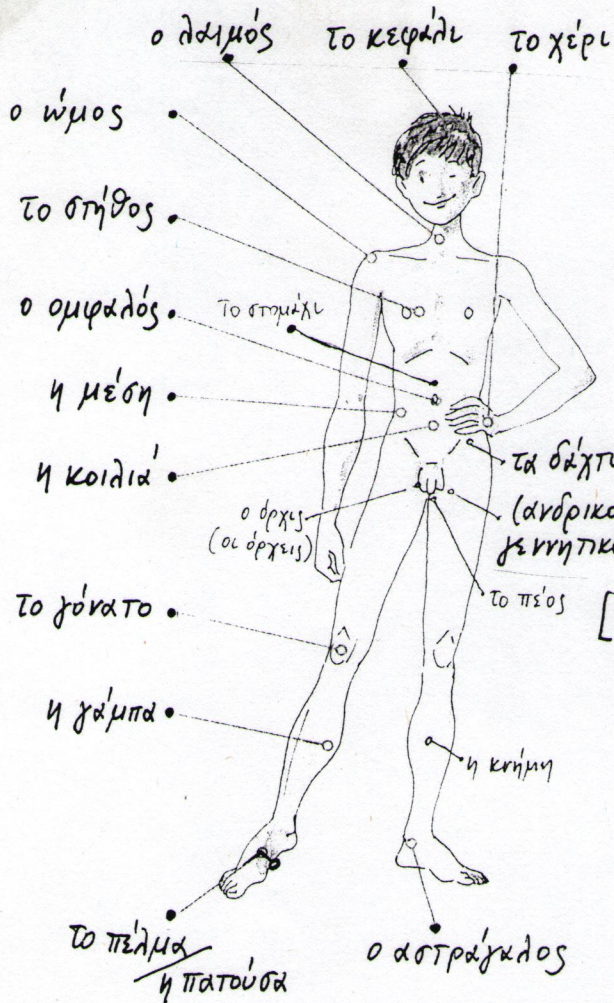 ο λαιμός
το κεφάλι
το χέρι
ο ώμος
το στήθος
ο ομφαλός
το στομάχι
η μέση
η κοιλιά
τα
ο όρχις
(οι όρχεις)
το πέος
[
το γόνατο
η γάμπα
η κνήμη
το πέλμα
/
η πατούσα
ο αστράγαλος